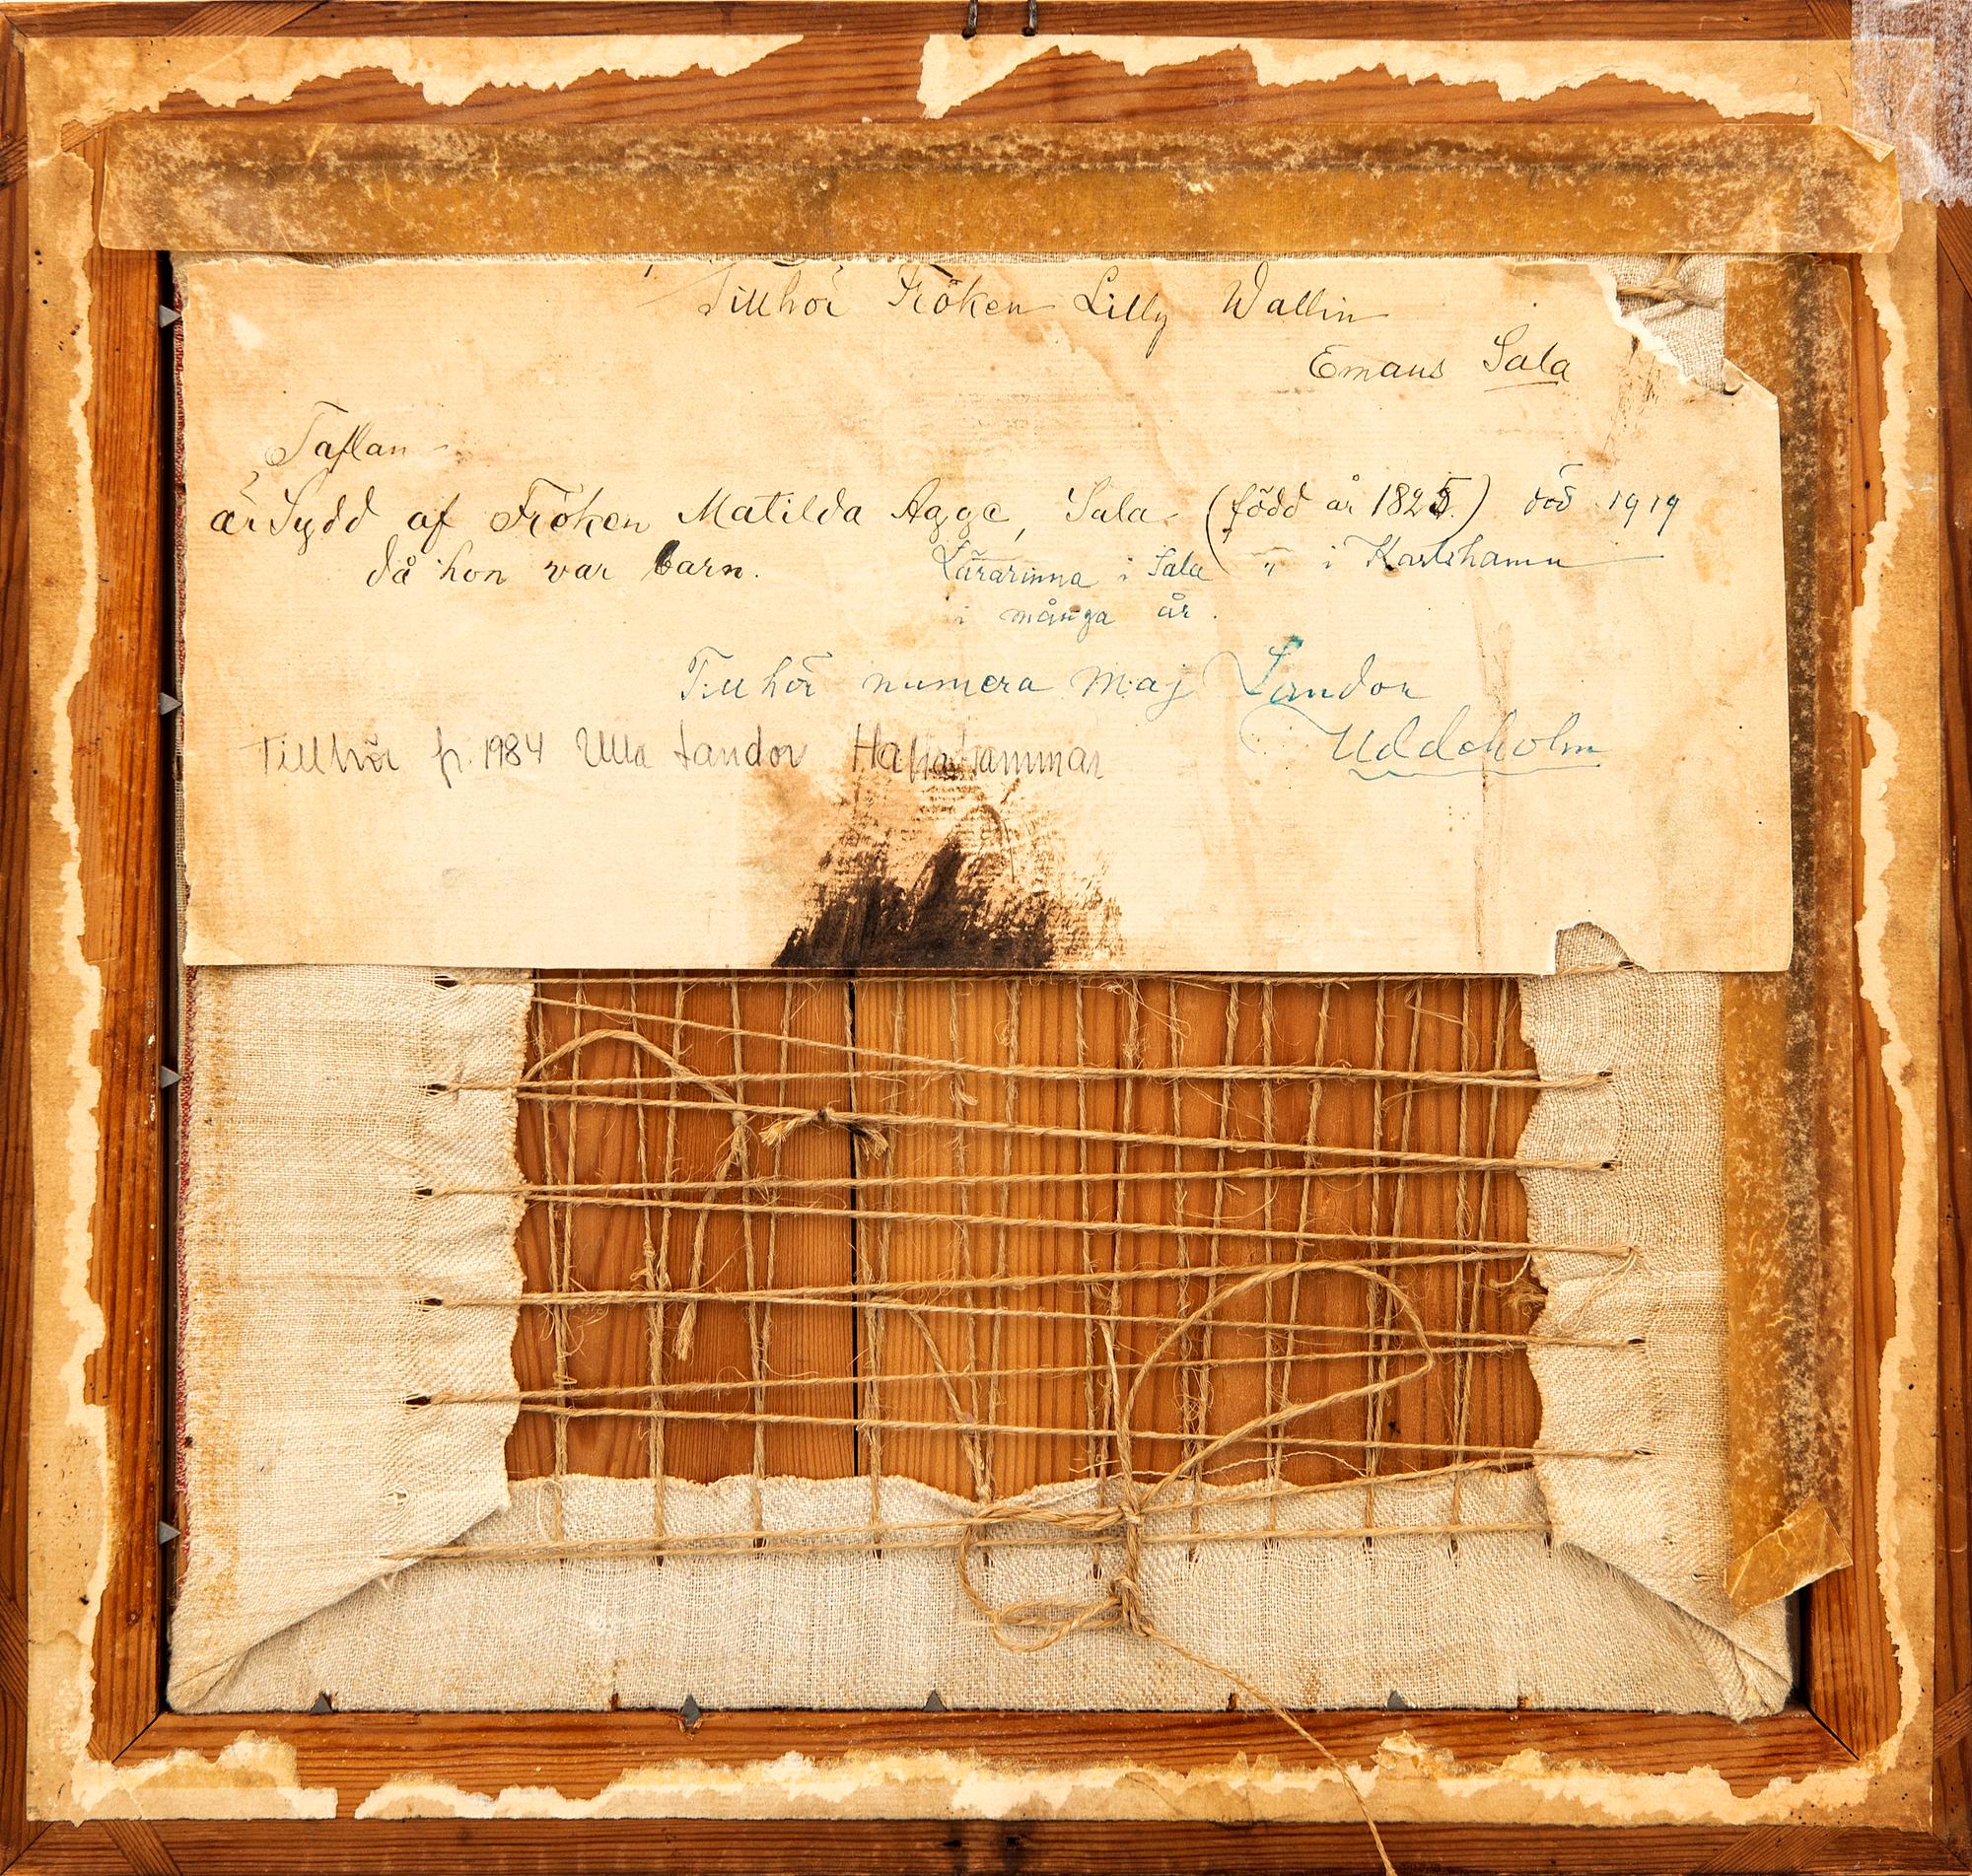 Tillhör Fröken Lilly Wallin
Emaus Sala
Taflan
är Sydd af Fröken Matilda Agge, Sala (född år 1825.) död 1919
då hon var barn. Lärarinna i Sala " i Karlshamn
i många år.
Tillhör numera Maj Sandor
Uddeholm
Tillhör fr. 1984 Ulla Sandor